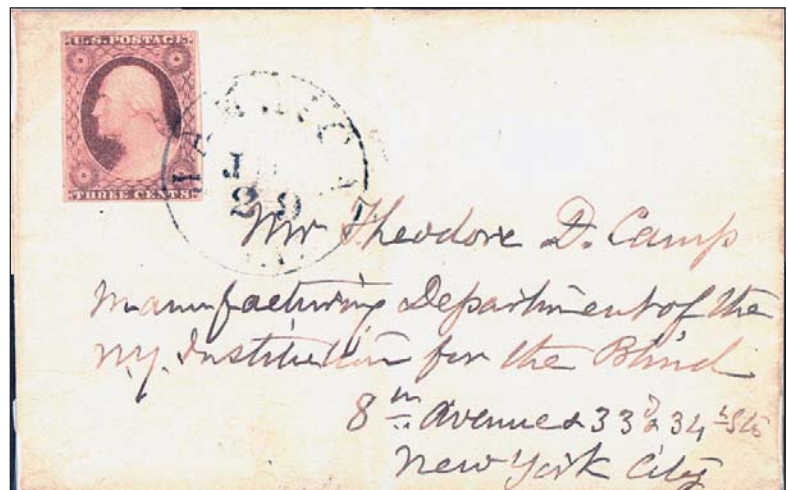 U.S. POSTAGE
THREE CENTS
29
Mr Theodore D. Camp
Manufacturing Department of the
N.Y. Institution for the Blind
8th Avenue & 33d & 34th Sts
New York City